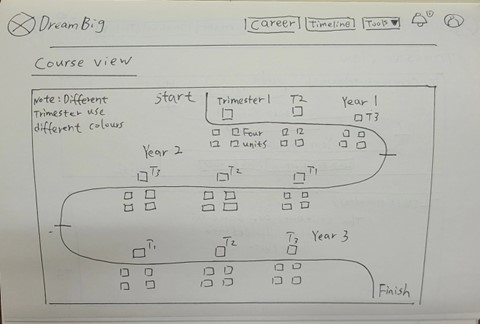 DreamBig
Career Timeline Tools
Course view
Note: Different
Trimester use
different colours
Start
Trimester 1 T2 Year 1
T3
Four
units
Year 2
T3 T2 T1
T1 T2 T3 Year 3
Finish